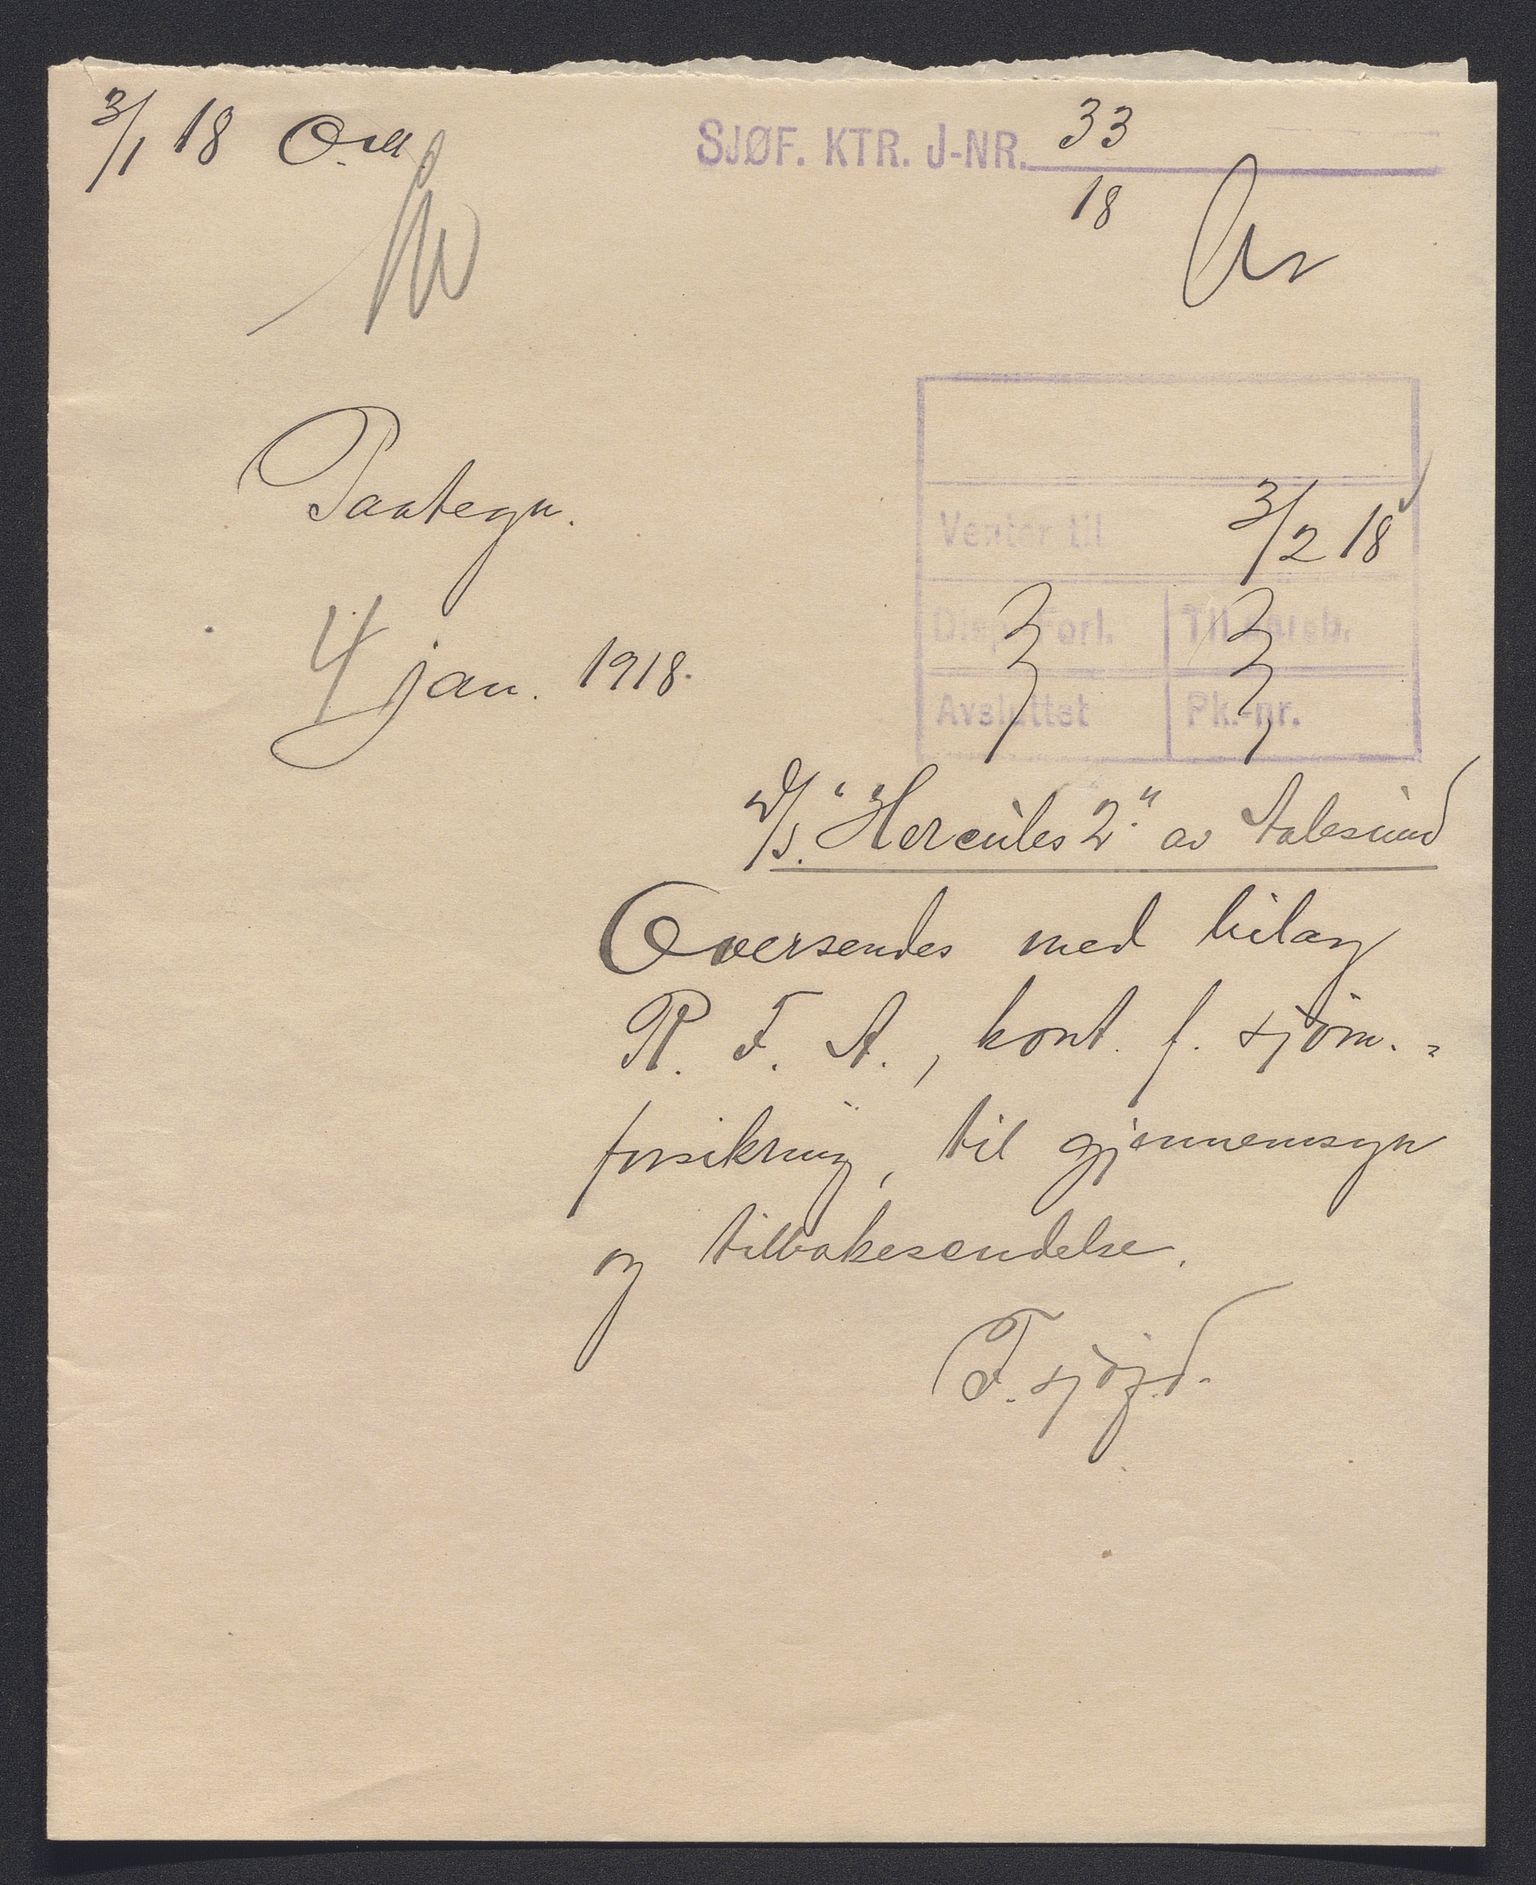 3/1 18
SJØF. KTR. J-NR. 33
18
Paategn.
Venter til 3/2 18
Disp. Forl. Til ansb.
4 jan. 1918.
Avsluttet Pk.-nr.
D/S. "Hercules 2" av Aalesund
Oversendes med bilag
R. F. A., kont. f. sjöm.-
forsikring, til gjennemsyn
og tilbakesendelse.
F. sjöfd.